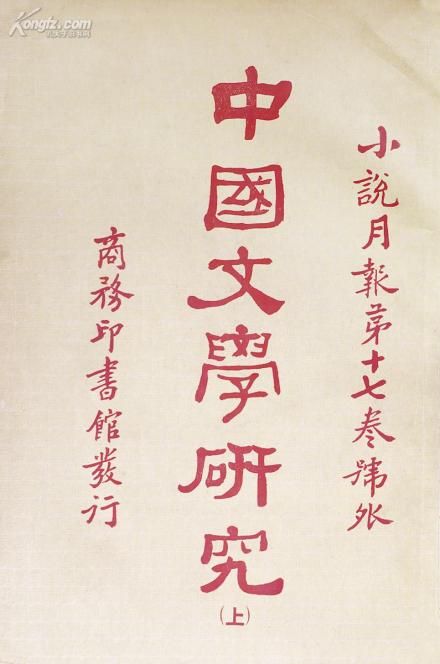 小說月報第十七卷號外
中國文學研究
(上)
商務印書館發行
Kongfz.com